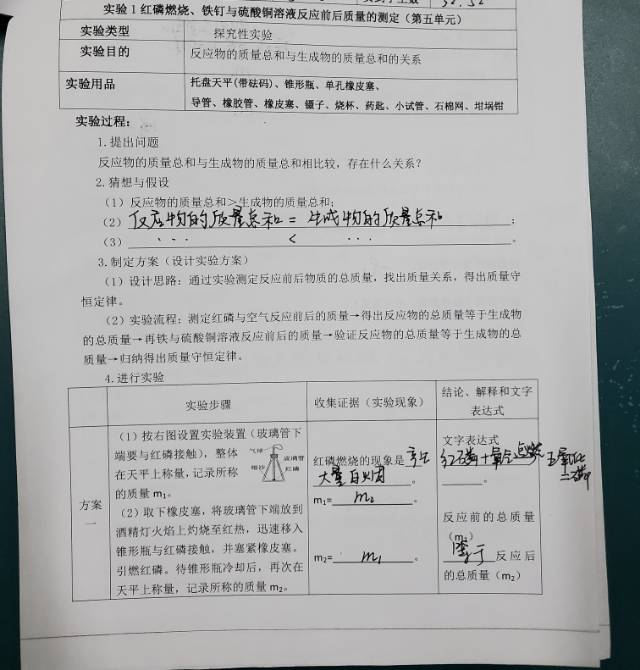 实验1 红磷燃烧、铁钉与硫酸铜溶液反应前后质量的测定（第五单元）
实验类型 探究性实验
实验目的 反应物的质量总和与生成物的质量总和的关系
实验用品 托盘天平(带砝码)、锥形瓶、单孔橡皮塞、
导管、橡胶管、橡皮塞、镊子、烧杯、药匙、小试管、石棉网、坩埚钳
实验过程：
1.提出问题
反应物的质量总和与生成物的质量总和相比较，存在什么关系？
2.猜想与假设
（1）反应物的质量总和>生成物的质量总和；
（2）反应物的质量总和 = 生成物的质量总和；
（3）... < ...。
3.制定方案（设计实验方案）
（1）设计思路：通过实验测定反应前后物质的总质量，找出质量关系，得出质量守
恒定律。
（2）实验流程：测定红磷与空气反应前后的质量→得出反应物的总质量等于生成物
的总质量→再铁与硫酸铜溶液反应前后的质量→验证反应物的总质量等于生成物的总
质量→归纳得出质量守恒定律。
4.进行实验
实验步骤 收集证据（实验现象） 结论、解释和文字
表达式
方案
一
（1）按右图设置实验装置（玻璃管下
端要与红磷接触），整体
在天平上称量，记录所称
的质量 m₁。
气球
玻璃管
细沙
红磷
（2）取下橡皮塞，将玻璃管下端放到
酒精灯火焰上灼烧至红热，迅速移入
锥形瓶与红磷接触，并塞紧橡皮塞。
引燃红磷。待锥形瓶冷却后，再次在
天平上称量，记录所称的质量 m₂。
红磷燃烧的现象是产生
大量白烟。
m₁=m₂。
m₂=m₁。
文字表达式
红磷+氧气 点燃 五氧化
二磷
。
反应前的总质量
（m₁）
等于反应后
的总质量（m₂）